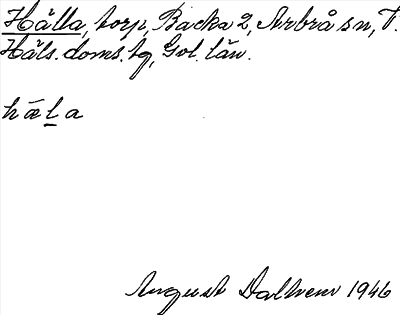 Hälla, torp, Backa 2, Arbrå sn, V.
Häls. doms. tg, Gvl. län.
hǟḷa
August Dalhem 1946